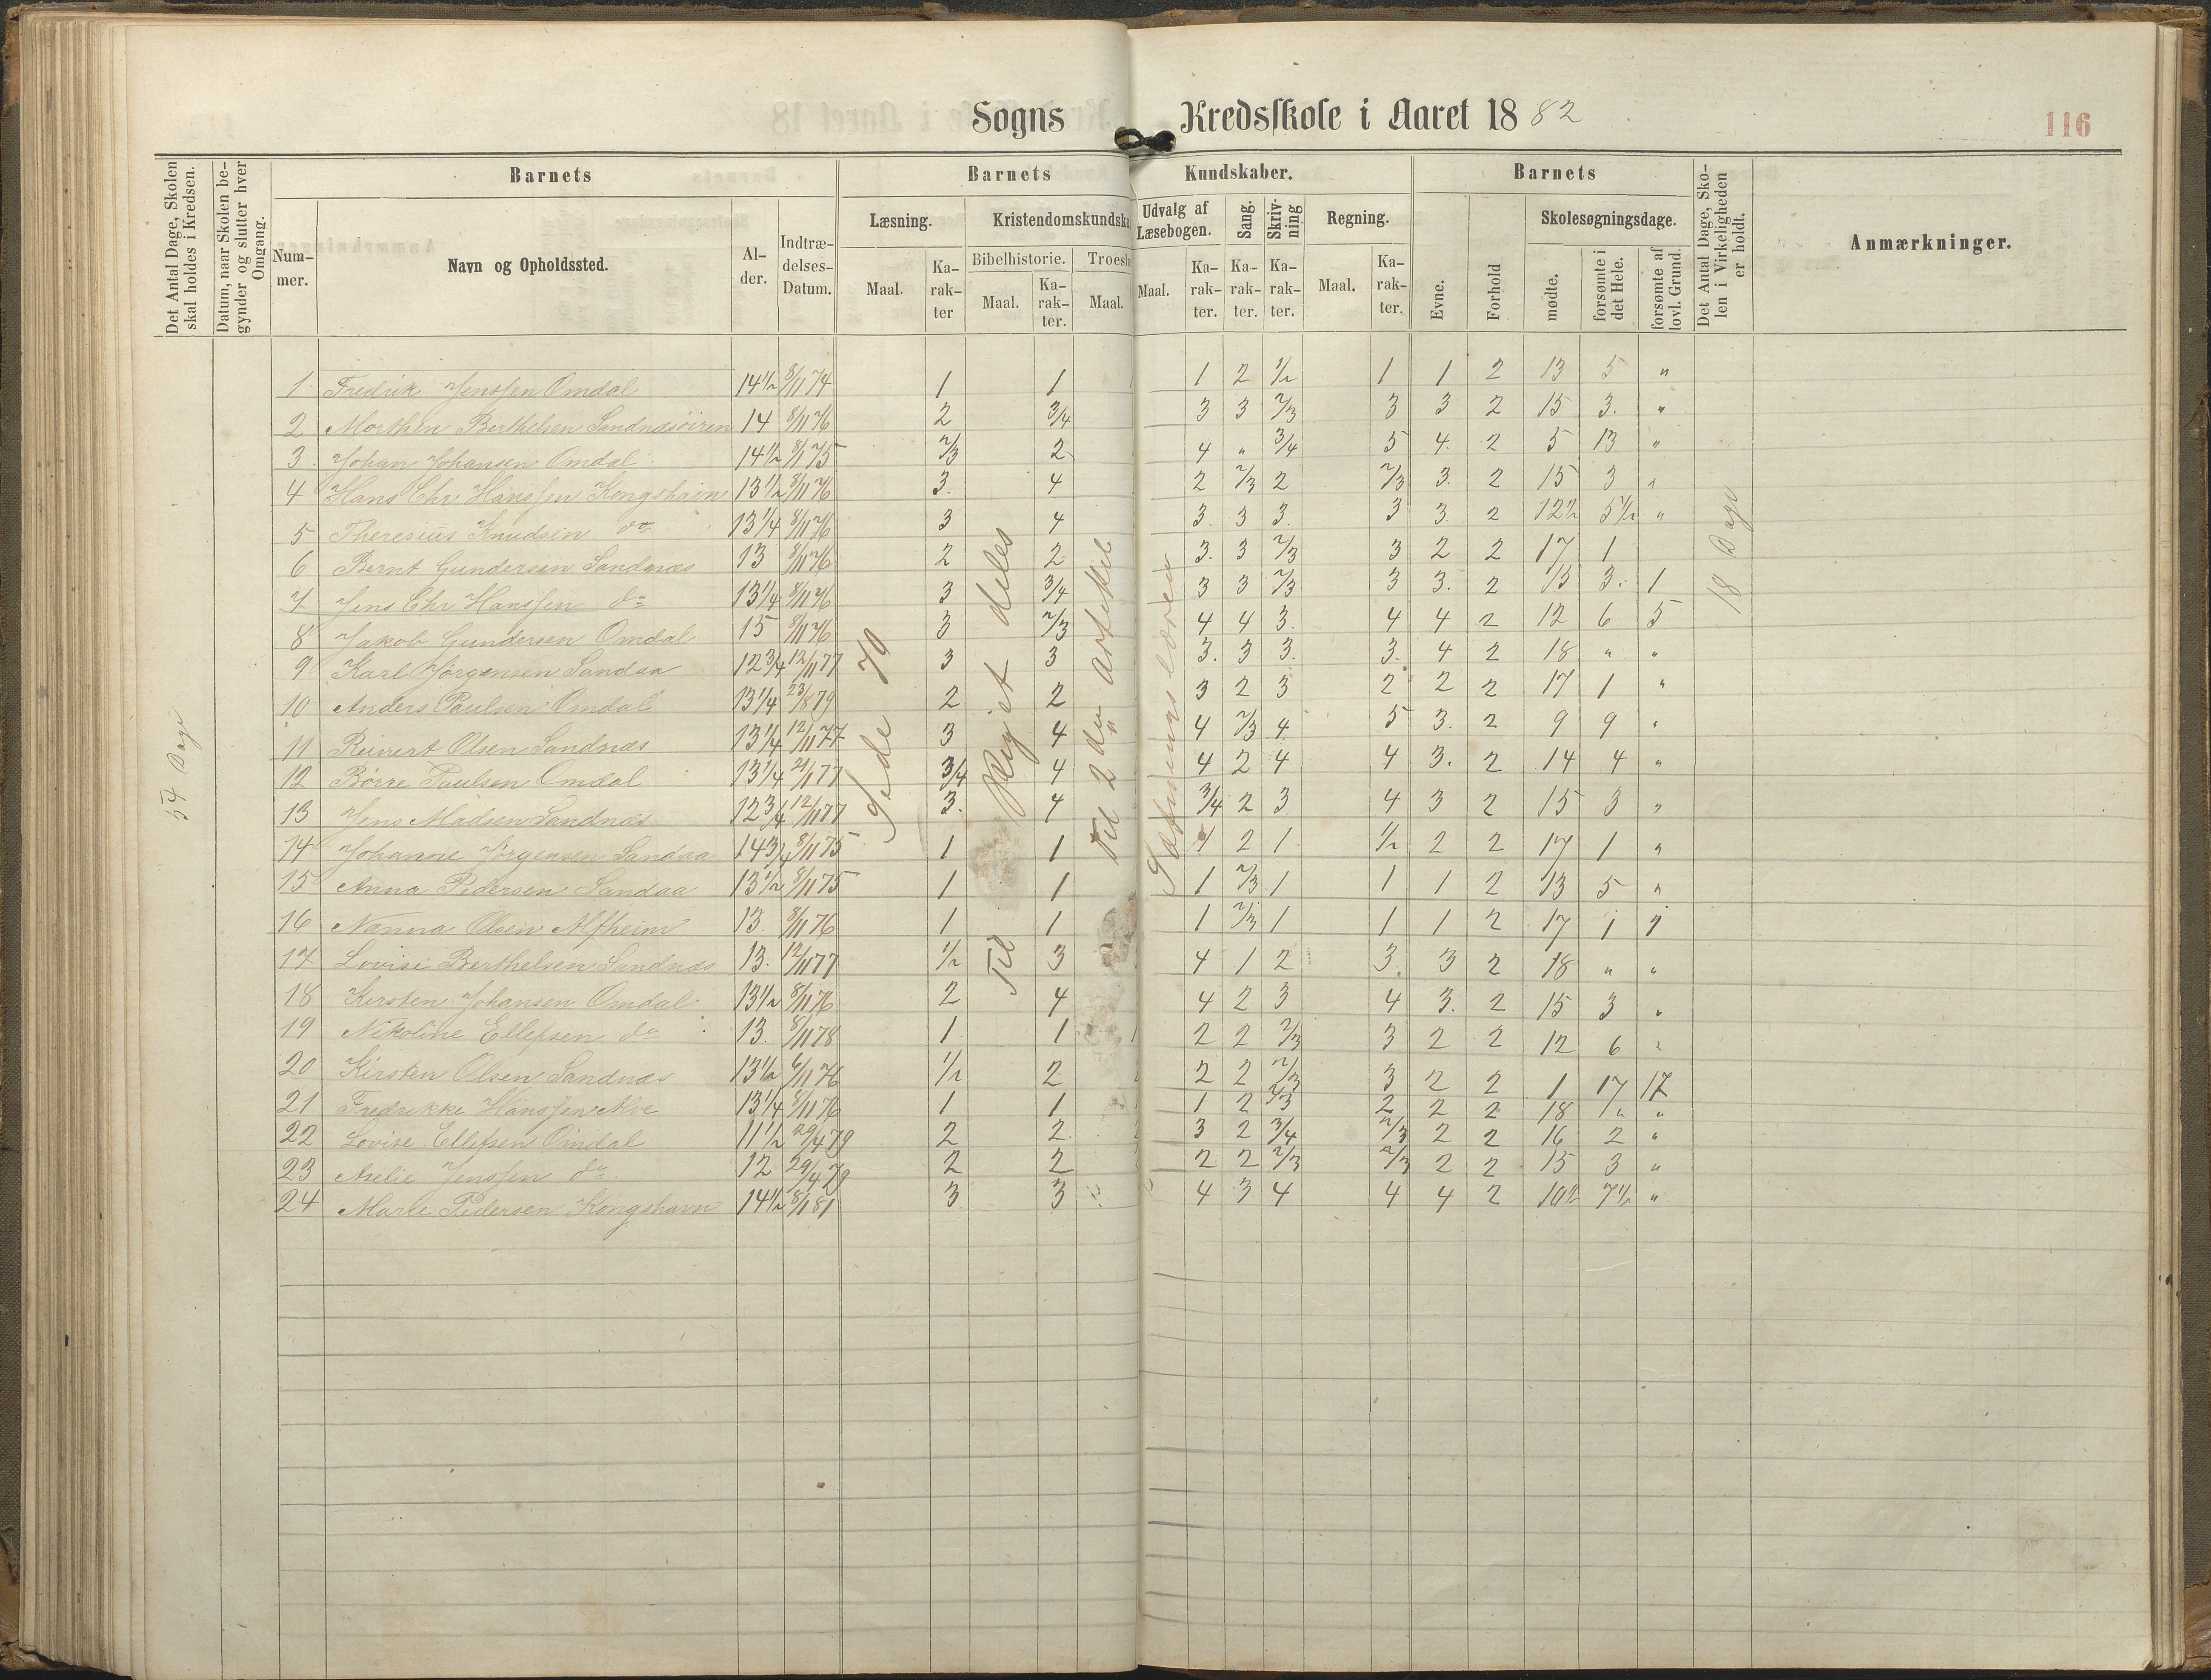 Sogns Kredsskole i Aaret 1882
116
Det Antal Dage, Skolen skal holdes i Kredsen.
Datum, naar Skolen begynder og slutter hver Omgang.
Barnets
Nummer.
Navn og Opholdssted.
Alder.
Indtrædelses-Datum.
Barnets Kundskaber.
Læsning.
Maal.
Karakter
Kristendomskundska
Bibelhistorie.
Maal.
Karakter.
Troesl
Maal.
Udvalg af Læsebogen.
Maal.
Karakter.
Sang.
Karakter.
Skrivning
Karakter.
Regning.
Maal.
Karakter.
Barnets
Evne.
Forhold
Skolesøgningsdage.
mødte.
forsømte i det Hele.
forsømte af lovl. Grund.
Det Antal Dage, Skolen i Virkeligheden er holdt.
Anmærkninger.
54 Dage
Side 70
Til Riget deles
Til 2den Artikel
18 Dage
1 Fredrik Jenssen Omdal 14 1/2 8/11 74 1 1 1 2 1/2 1 1 2 13 5 "
2 Morthen Berthelsen Sandnæsøiren 14 8/11 76 2 3/4 3 3 2/3 3 3 2 15 3. "
3 Johan Johansen Omdal 14 1/2 8/1 75 2/3 2 4 " 3/4 5 4. 2 5 13 "
4 Hans Chr Hanssen Kongshavn 13 1/2 8/11 76 3. 4 2 2/3 2 2/3 3. 2 15 3 "
5 Theresius Knudsen do 13 1/4 8/11 76 3 4 3. 3 3. 3 3. 2 12 1/2 5 1/2 "
6 Bernt Gundersen Sandnæs 13 8/11 76 2 2 3. 3 2/3 3 2 2 17 1
7 Jens Chr Hanssen do 13 1/4 8/11 76 3 3/4 3 3 2/3 3 3. 2 15 3. 1
8 Jakob Gundersen Omdal 15 8/11 76 3 2/3 4 4 3. 4 4 2 12 6 5
9 Karl Jørgensen Sandaa 12 3/4 12/11 77 3 3 3. 3 3. 3. 4 2 18 " "
10 Anders Paulsen Omdal 13 1/4 23/8 79 2 2 3 2 3 2 2 2 17 1 "
11 Reinert Olsen Sandnæs 13 1/4 12/11 77 3 4 4 2/3 4 5 3. 2 9 9 "
12 Børre Paulsen Omdal 13 1/4 21/1 77 3/4 4 4 2 4 4 3. 2 14 4 "
13 Jens Madsen Sandnæs 12 3/4 12/11 77 3. 4 3/4 2 3 4 3 2 15 3 "
14 Johanne Jørgensen Sandaa 14 3/4 8/11 75 1 1 1 2 1 1/2 2 2 17 1 "
15 Anna Pedersen Sandaa 13 1/2 8/11 75 1 1 1 2/3 1 1 1 2 13 5 "
16 Nanna Olsen Alfheim 13. 8/11 76 1 1 1 2/3 1 1 1 2 17 1 1
17 Lovise Berthelsen Sandnæs 13. 12/11 77 1/2 3 4 1 2 3. 3 2 18 " "
18 Kirsten Johansen Omdal 13 1/2 8/11 76 2 4 4 2 3 4 3. 2 15 3 "
19 Nikoline Ellefsen do 13. 8/11 78 1 1 2 2 2/3 3 2 2 12 6 "
20 Kirsten Olsen Sandnæs 13 1/2 6/11 76 1/2 2 2 2 2/3 3 2 2 1 17 17
21 Fredrikke Hanssen Alve 13 1/4 8/11 76 1 1 1 2 2/3 2 2 2 18 " "
22 Lovise Ellefsen Omdal 11 1/2 29/4 79 2 2 3 2 3/4 2/3 2 2 16 2 "
23 Amelie Jenssen do 12 29/4 79 2 2 2 2 2/3 2/3 2 2 15 3 "
24 Marie Pedersen Kongshavn 14 1/2 8/1 81 3 3 4 3 4 4 4 2 10 1/2 7 1/2 "